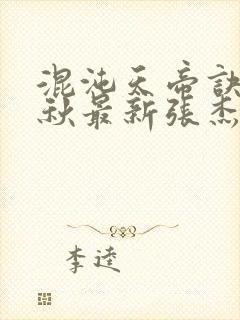 混沌天帝訣
秋最新張杰
李逵